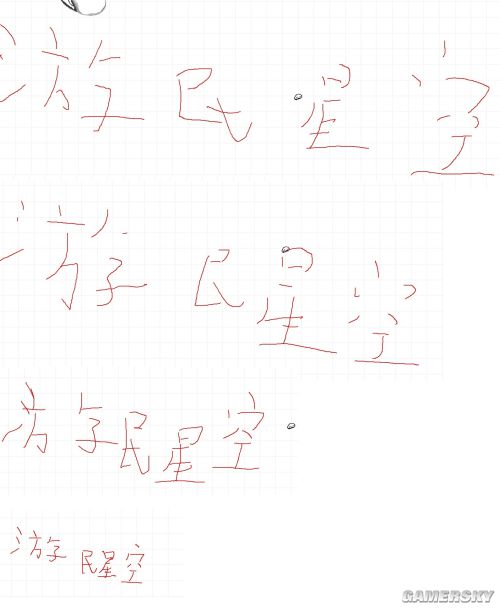 游民星空
游民星空
游民星空
游民星空
GAMERSKY